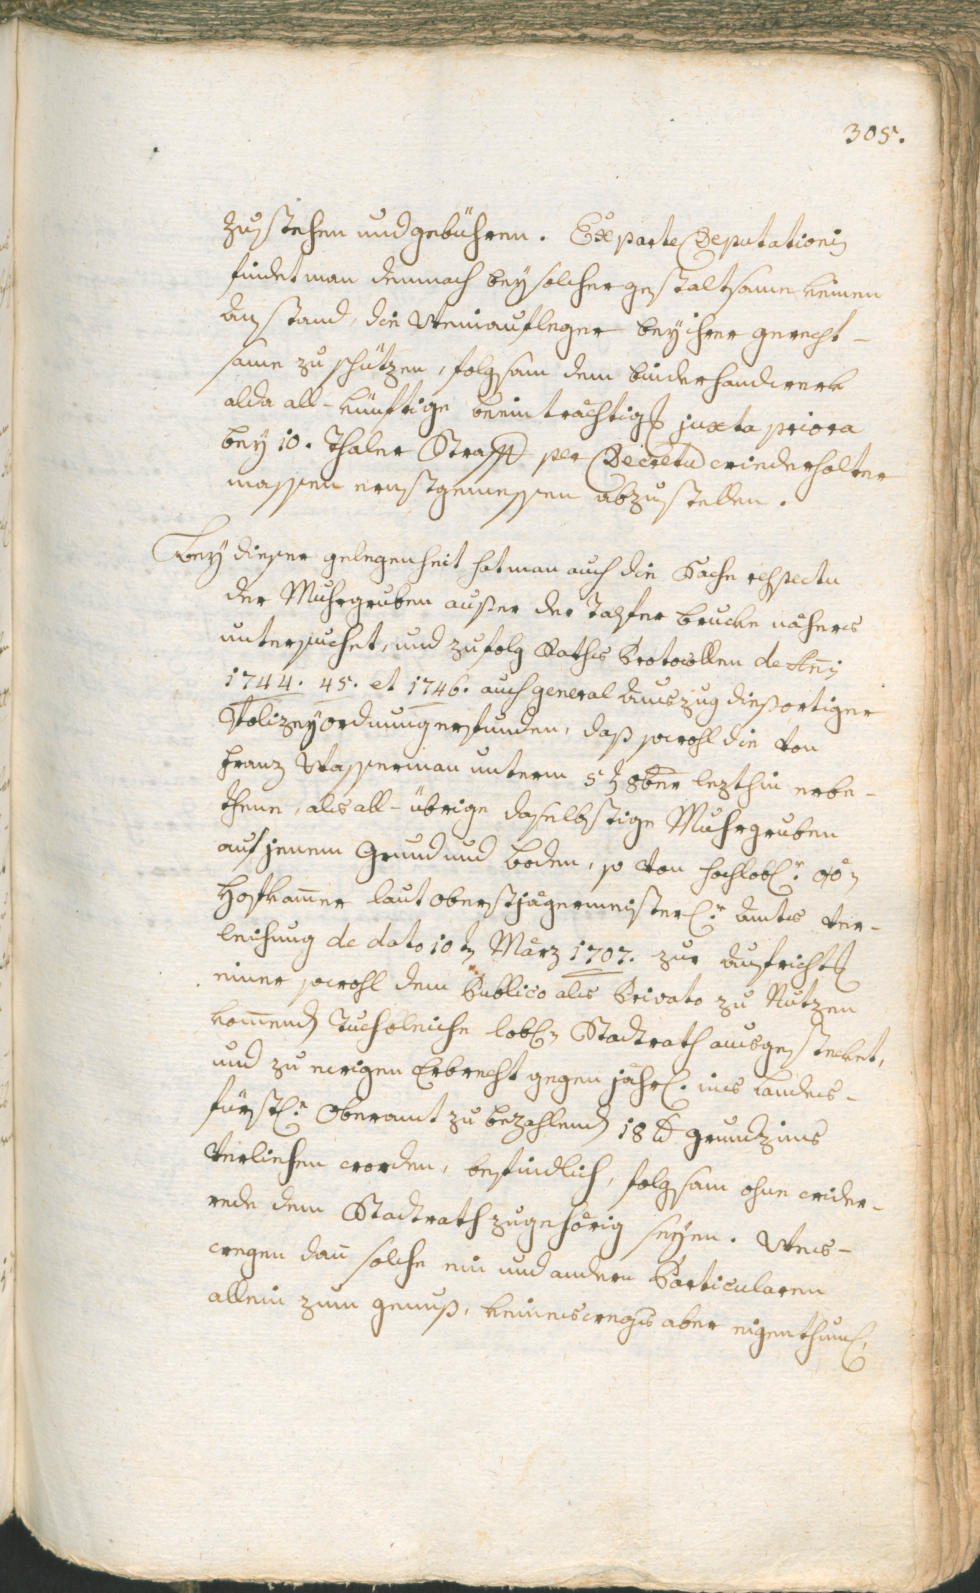 305.
zustehen und gebühren. Ex parte Deputationis
findet man demnach bey solcher gestaltsame keinen
anstand, die Weinaufleger bey ihrer gerecht-
same zu schützen, folgsam dem binderhandwerk
alda all-künftige beeinträchtig[ung] juxta priora
bey 10. Thaler Straff per Decretu[m] wiederholter
massen ernstgemessen abzustellen.
Bey dieser gelegenheit hat man auch die Sache respectu
der Muhrgruben außer der Talfer brucke näherrs
untersuchet, und zufolg Raths Protocollen de Annis
1744. 45. et 1746. auch general auszug diesortiger
Polizeyordnung erfunden, daß sowohl die von
Franz Wasserman unterm 5t 8ber lezthin erbe-
thene, als all-übrige daselbstige Muhrgruben
auf jenem Grund und boden, so von hochlobl:r oö
Hofkamer laut Oberstjägermeisterl:n amts ver-
leihung de dato 10t März 1707. zur aufricht[ung]
einer sowohl dem Publico als Privato zu Nutzen
komend Tuchbleiche lobl Stadtrath ausgestecket,
und zu ewigen Erbrecht gegen jährl: ins Landes-
fürstl:e Oberamt zu bezahlend 18 grundzins
verliehen worden, befindlich, folgsam ohne wider-
rede dem Stadtrath zugehörig seyen. Wes-
wegen dan solche ein und andern Particularen
allein zum genuß, keineswegs aber eigenthüml: